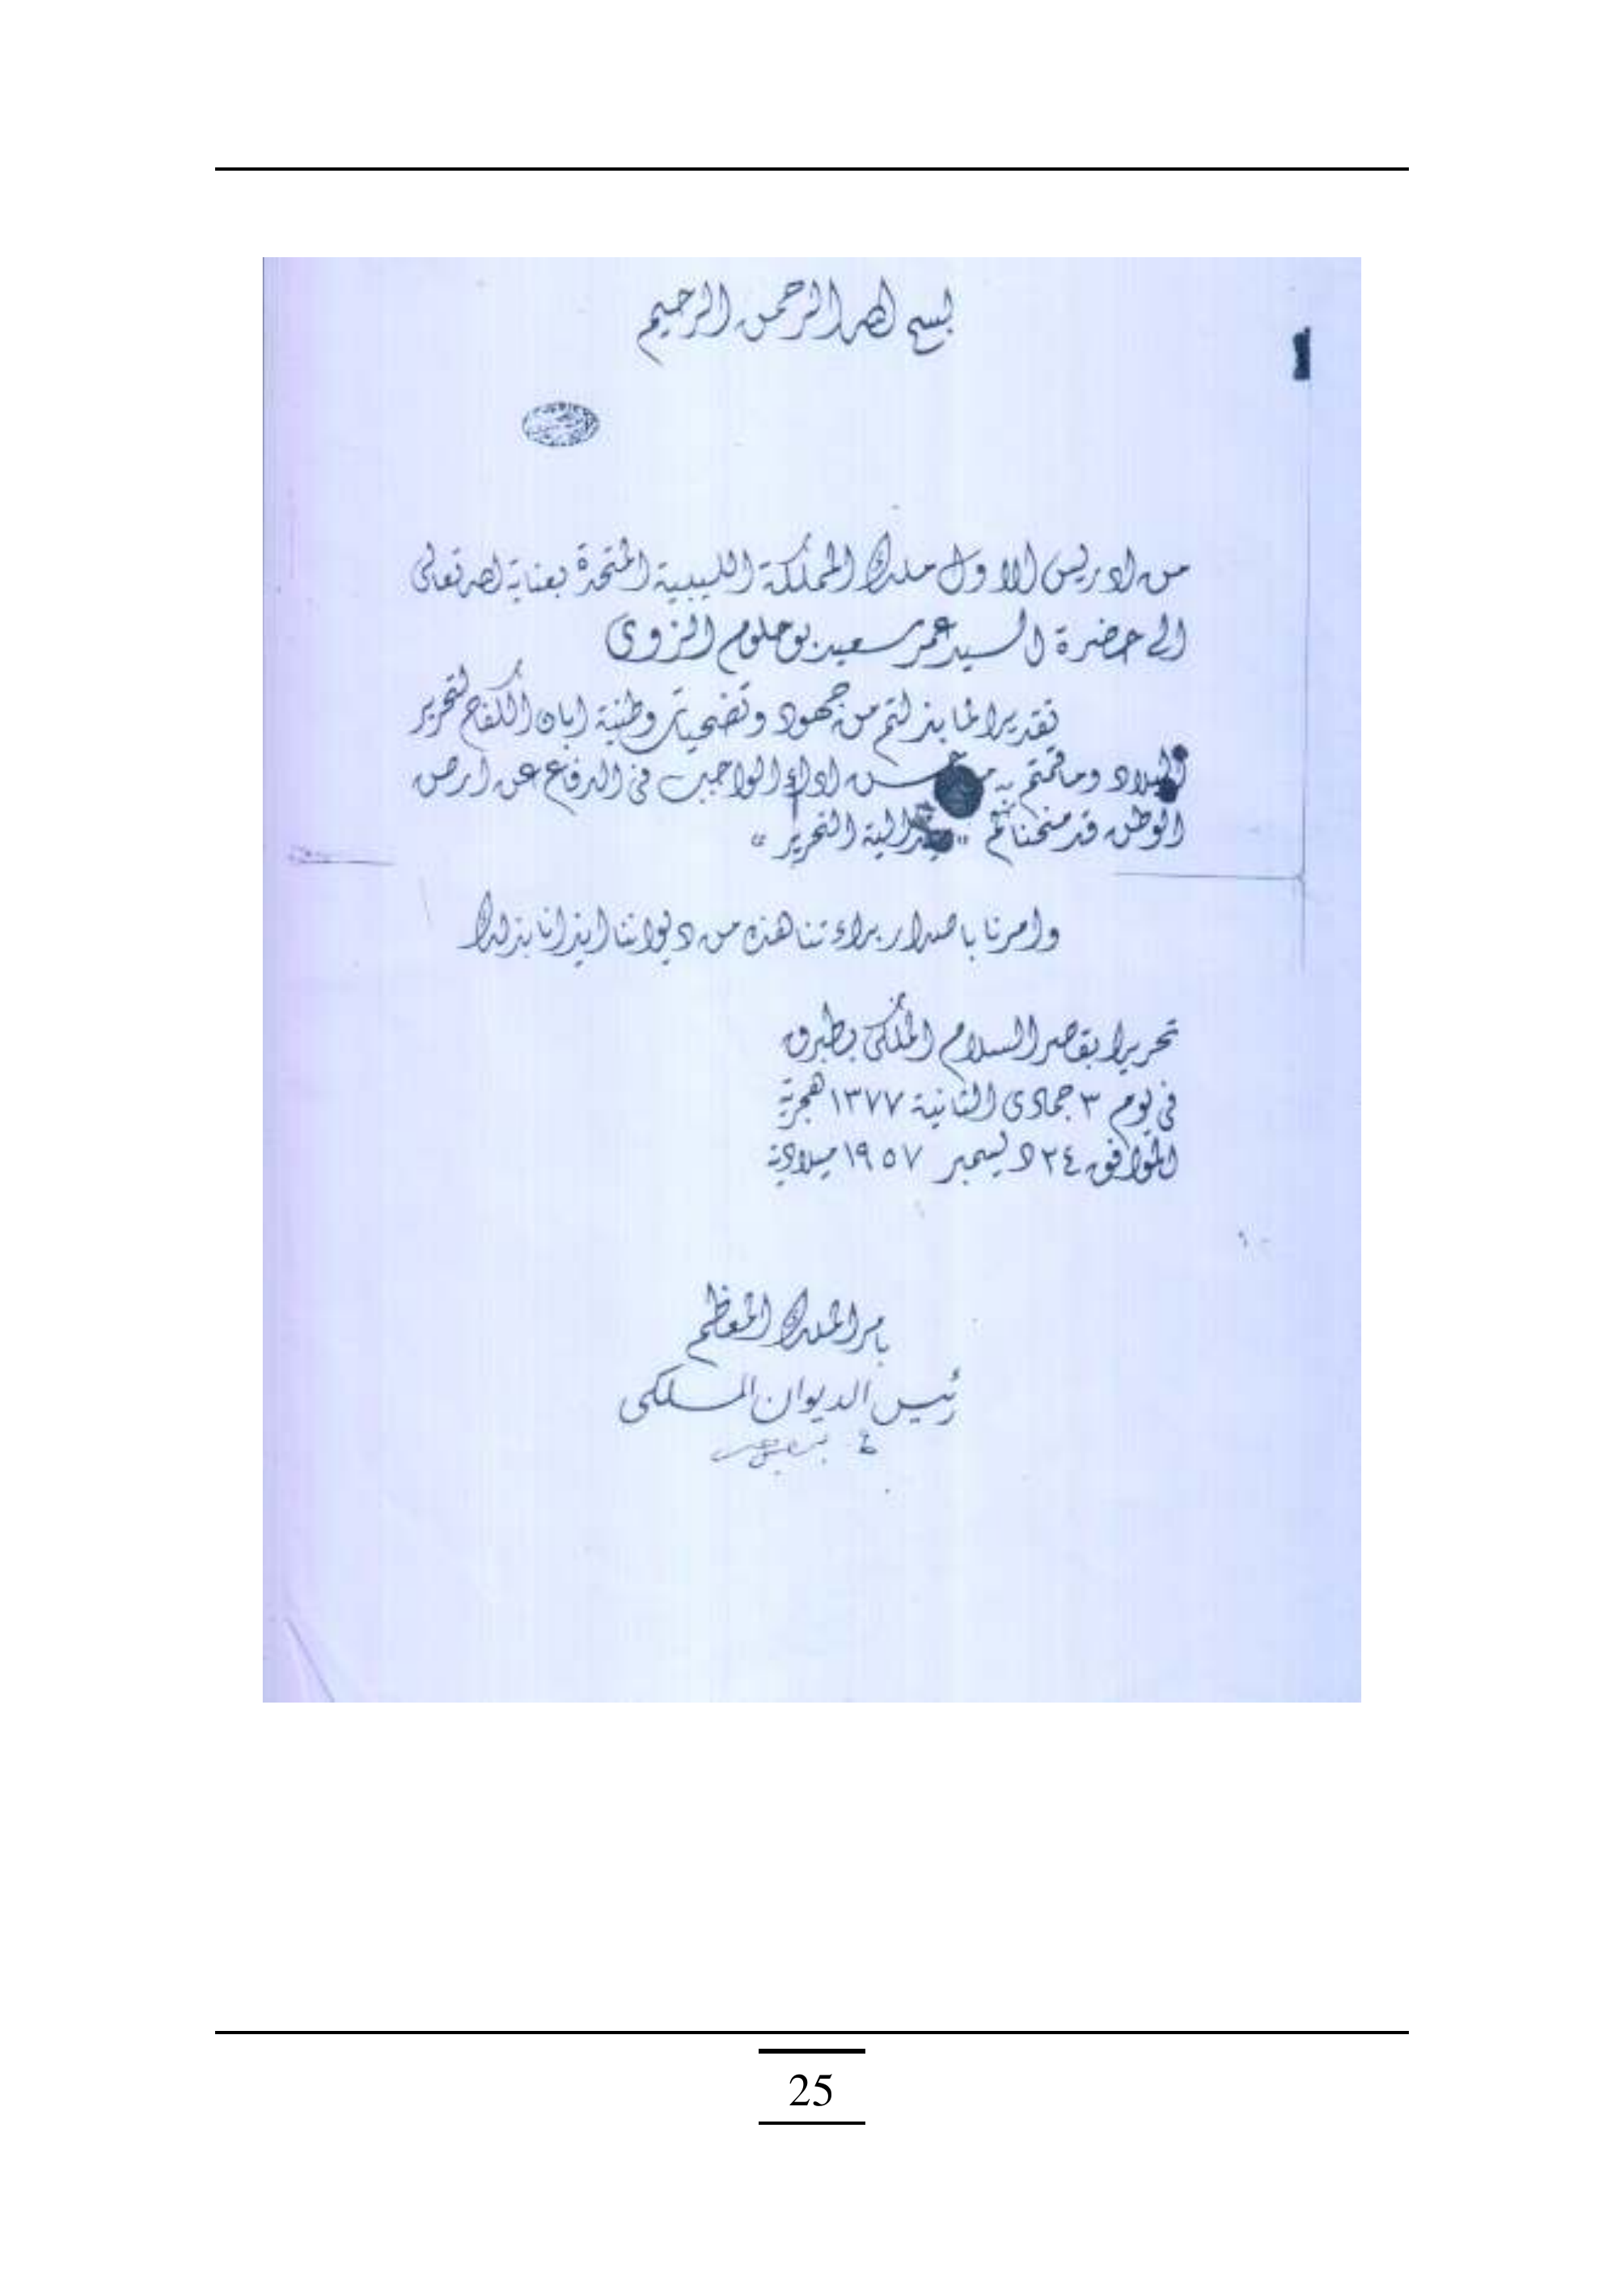 بسم الله الرحمن الرحيم
من ادريس الاول ملك المملكة الليبية المتحدة بعناية الله تعالى
الى حضرة السيد عمر سعيد بوحلوم الزوى
تقديرا لما بذلتم من جهود وتضحيات وطنية ابان الكفاح لتحرير
البلاد وما قمتم به من حسن اداء الواجب فى الدفاع عن ارض
الوطن قد منحناكم " ميدالية التحرير "
وامرنا باصدار براءتنا هذه من ديواننا ايذانا بذلك
تحريرا بقصر السلام الملكى بطبرق
فى يوم ٣ جمادى الثانية ١٣٧٧ هجرية
الموافق ٢٤ ديسمبر ١٩٥٧ ميلادية
بامر الملك المعظم
رئيس الديوان الملكى
25